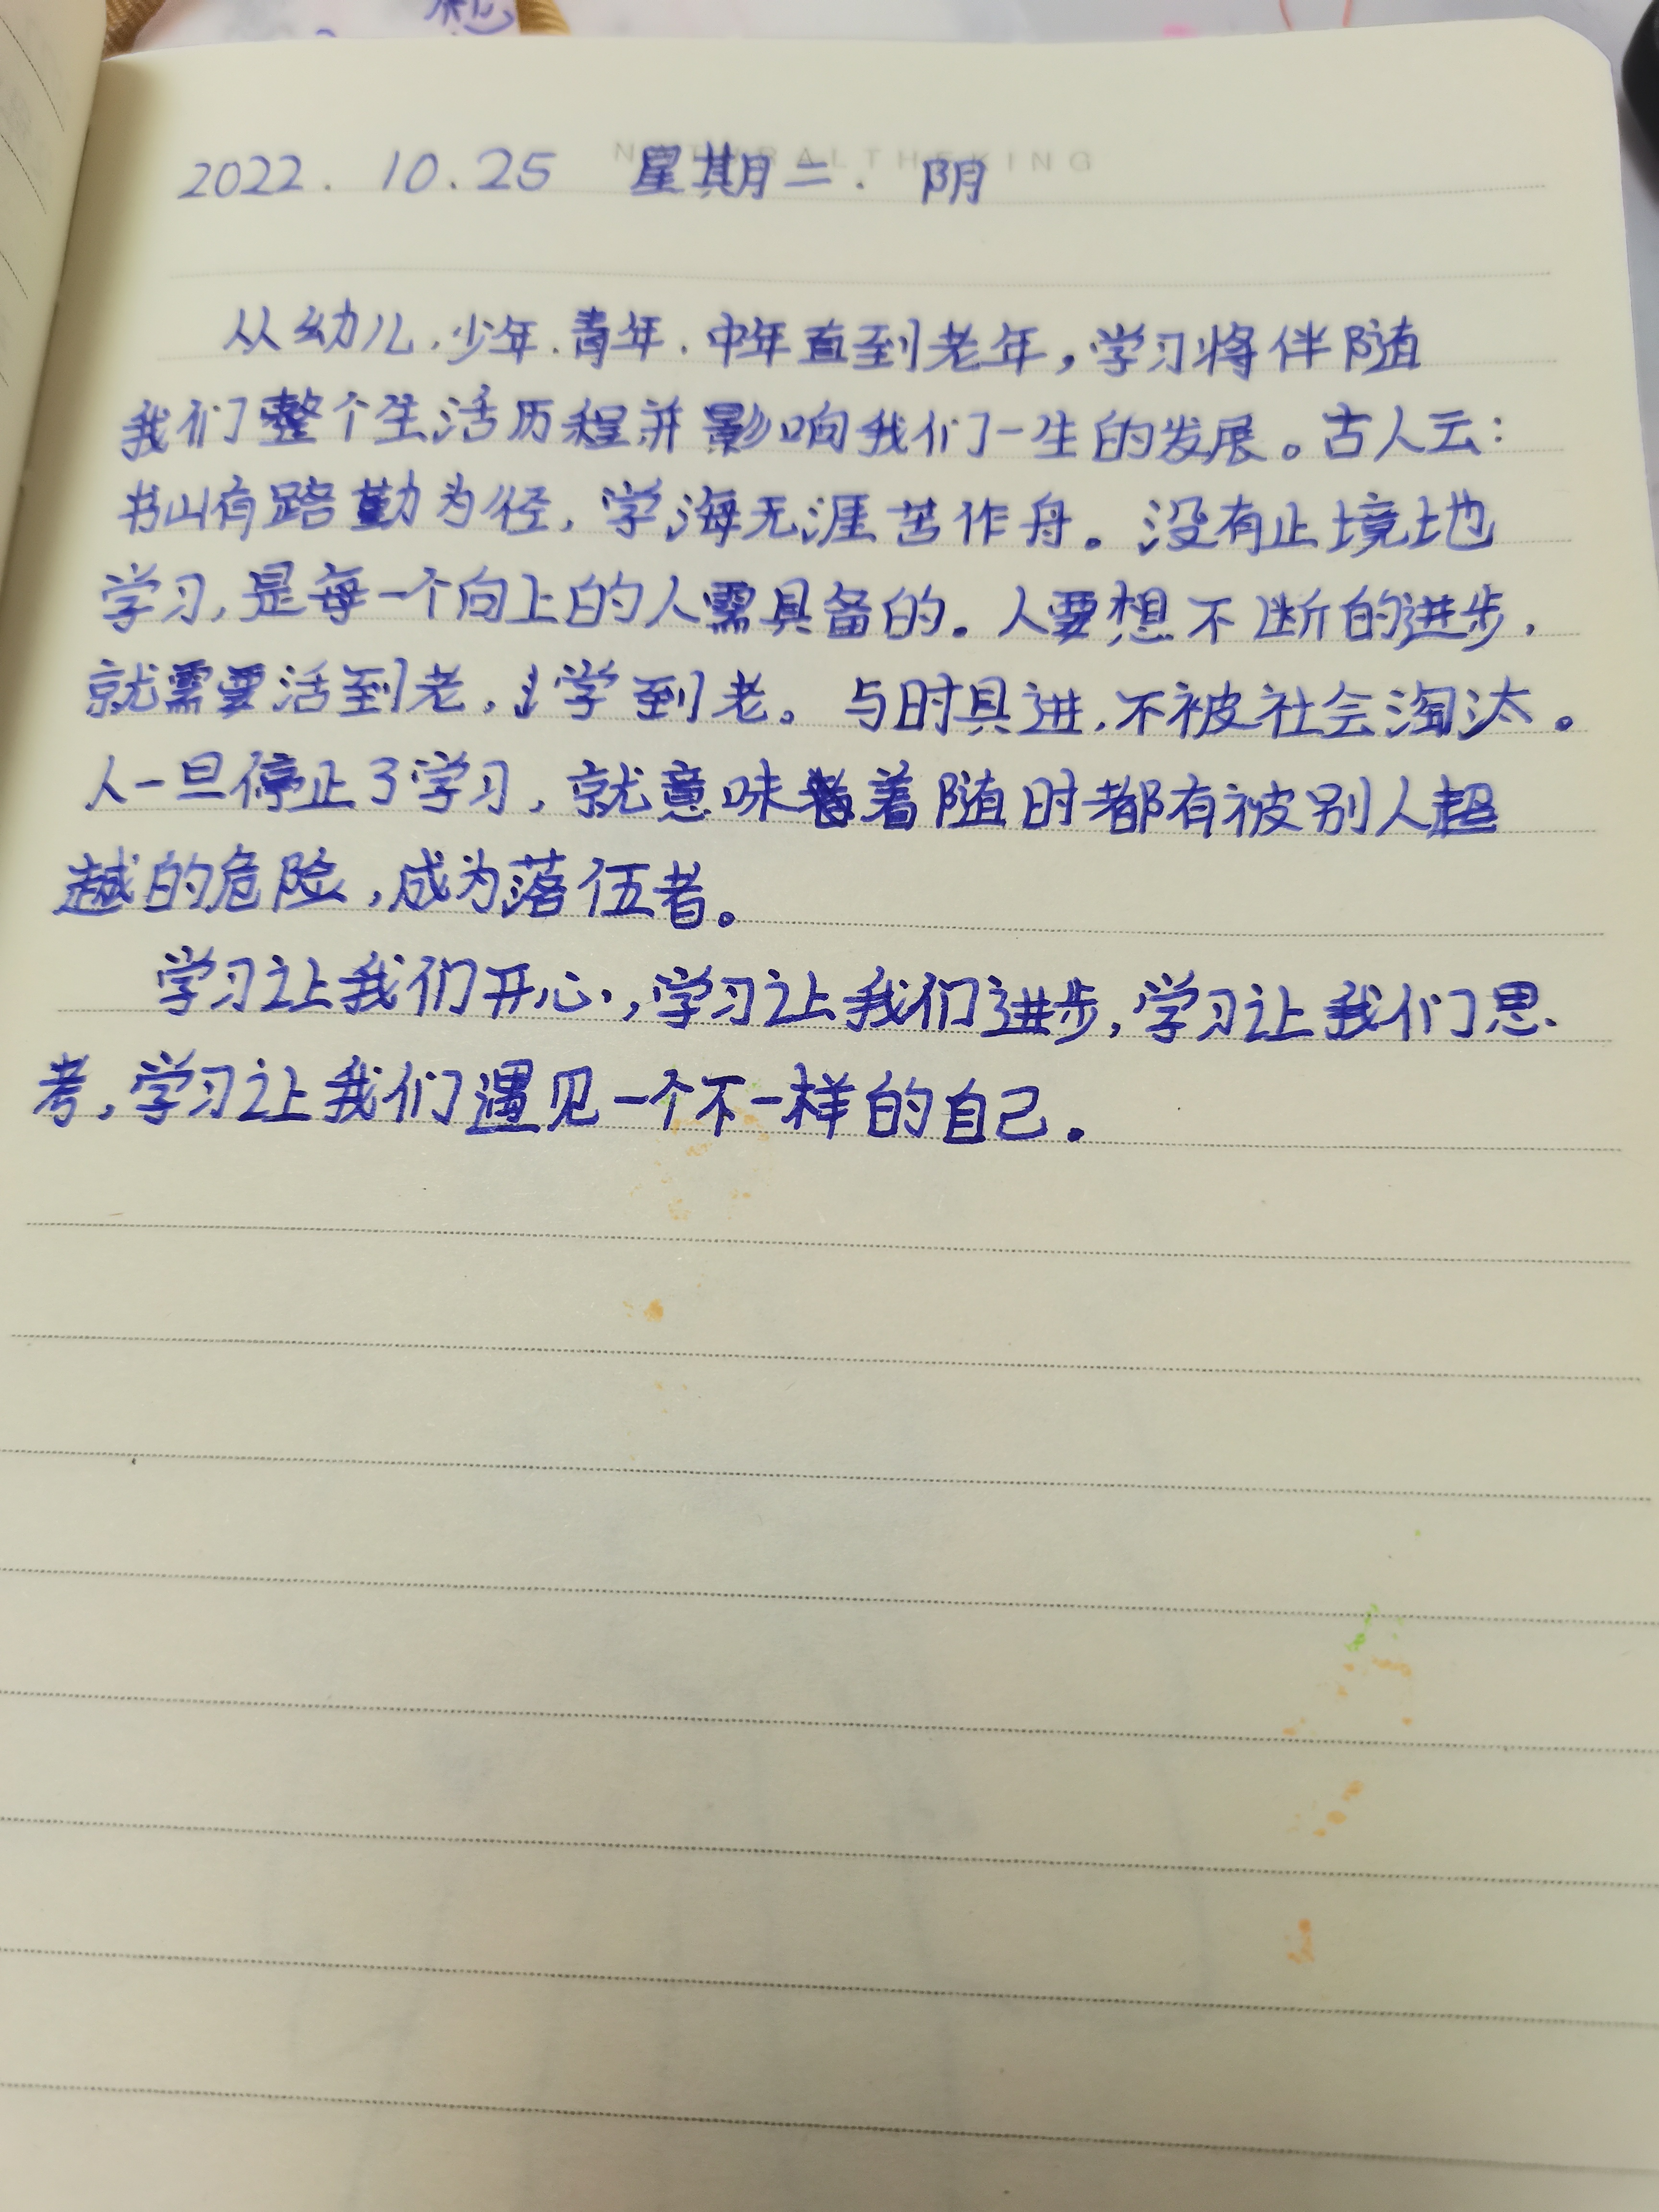 NATURALTHEKING
2022. 10.25 星期二. 阴
从幼儿.少年.青年.中年直到老年,学习将伴随
我们整个生活历程并影响我们一生的发展。古人云:
书山有路勤为径,学海无涯苦作舟。没有止境地
学习,是每一个向上的人需具备的。人要想不断的进步,
就需要活到老,学到老。与时具进,不被社会淘汰。
人一旦停止了学习,就意味着随时都有被别人超
越的危险,成为落伍者。
学习让我们开心,学习让我们进步,学习让我们思
考,学习让我们遇见一个不一样的自己。